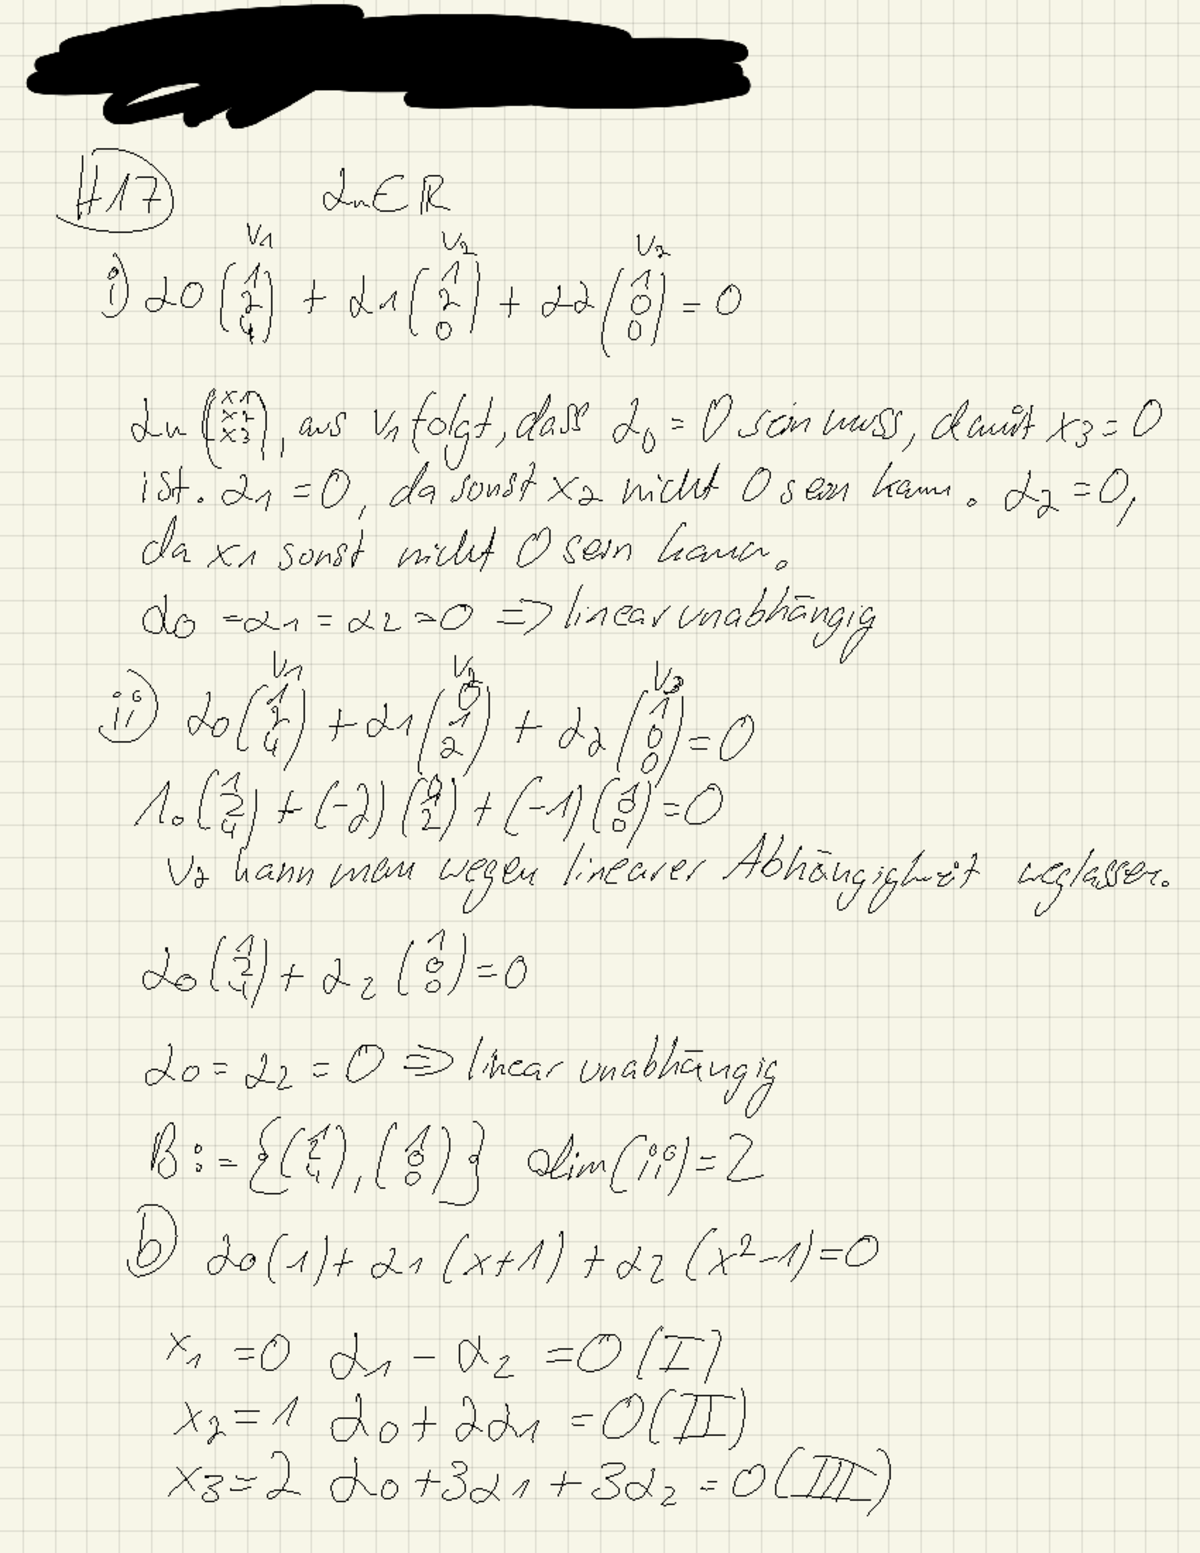 H17 αn∈ℝ
v1 v2 v3
i) α0 (1 2 4) + α1 (1 2 0) + α2 (1 0 0) = 0
αn (x1 x2 x3), aus v1 folgt, dass α0 = 0 sein muss, damit x3 = 0
ist. α1 = 0, da sonst x2 nicht 0 sein kann. α2 = 0,
da x1 sonst nicht 0 sein kann.
α0 = α1 = α2 = 0 => linear unabhängig
v1 v2 v3
ii) α0 (1 2 4) + α1 (0 1 2) + α2 (1 0 0) = 0
1 · (1 2 4) + (-2) (0 1 2) + (-1) (1 0 0) = 0
v2 kann man wegen linearer Abhängigkeit weglassen.
α0 (1 2 4) + α2 (1 0 0) = 0
α0 = α2 = 0 => linear unabhängig
B := {(1 2 4), (1 0 0)} dim(ii) = 2
b) α0 (1) + α1 (x+1) + α2 (x²-1) = 0
x1 = 0 α1 - α2 = 0 (I)
x2 = 1 α0 + 2α1 = 0 (II)
x3 = 2 α0 + 3α1 + 3α2 = 0 (III)